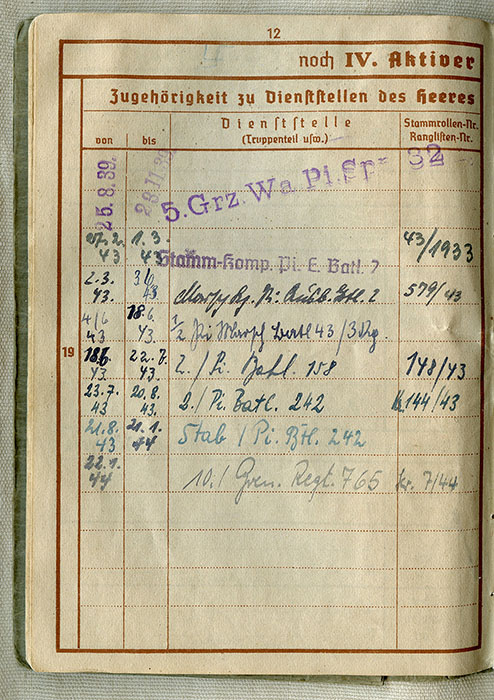 12
noch IV. Aktiver
Zugehörigkeit zu Dienststellen des Heeres
von bis Dienststelle (Truppenteil usw.) Stammrollen-Nr. Ranglisten-Nr.
25.8.39. 29.11. 5. Grz. Wa. Pi. Sp. 32
2. 43 1.3. 43 Stamm-Komp. Pi. E. Batl. 7 43/1933
2.3. 43. 43 Pi. 2 579/43
4/6 43 18.6. 43. 1/2 Pi Marsch Batl 43/3
19
18.6. 43. 22.7. 43 2./Pi. Batl. 158 148/43
23.7. 43 20.8. 43. 2./Pi. Batl. 242 144/43
21.8. 43 21.1. 44 Stab/Pi. Btl. 242
22.1. 44 10./Gren. Regt. 765 kr. 7/44